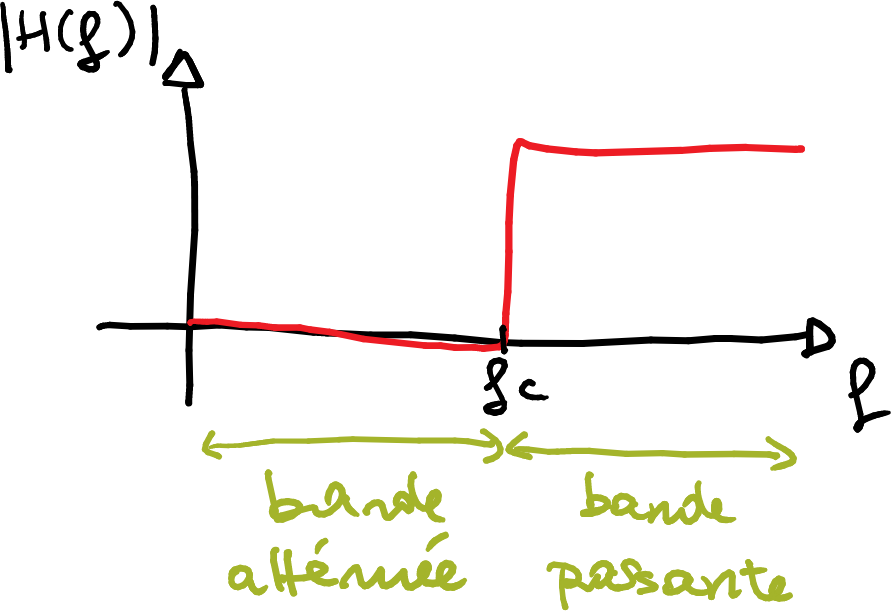 |H(f)|
fc
f
bande
atténuée
bande
passante